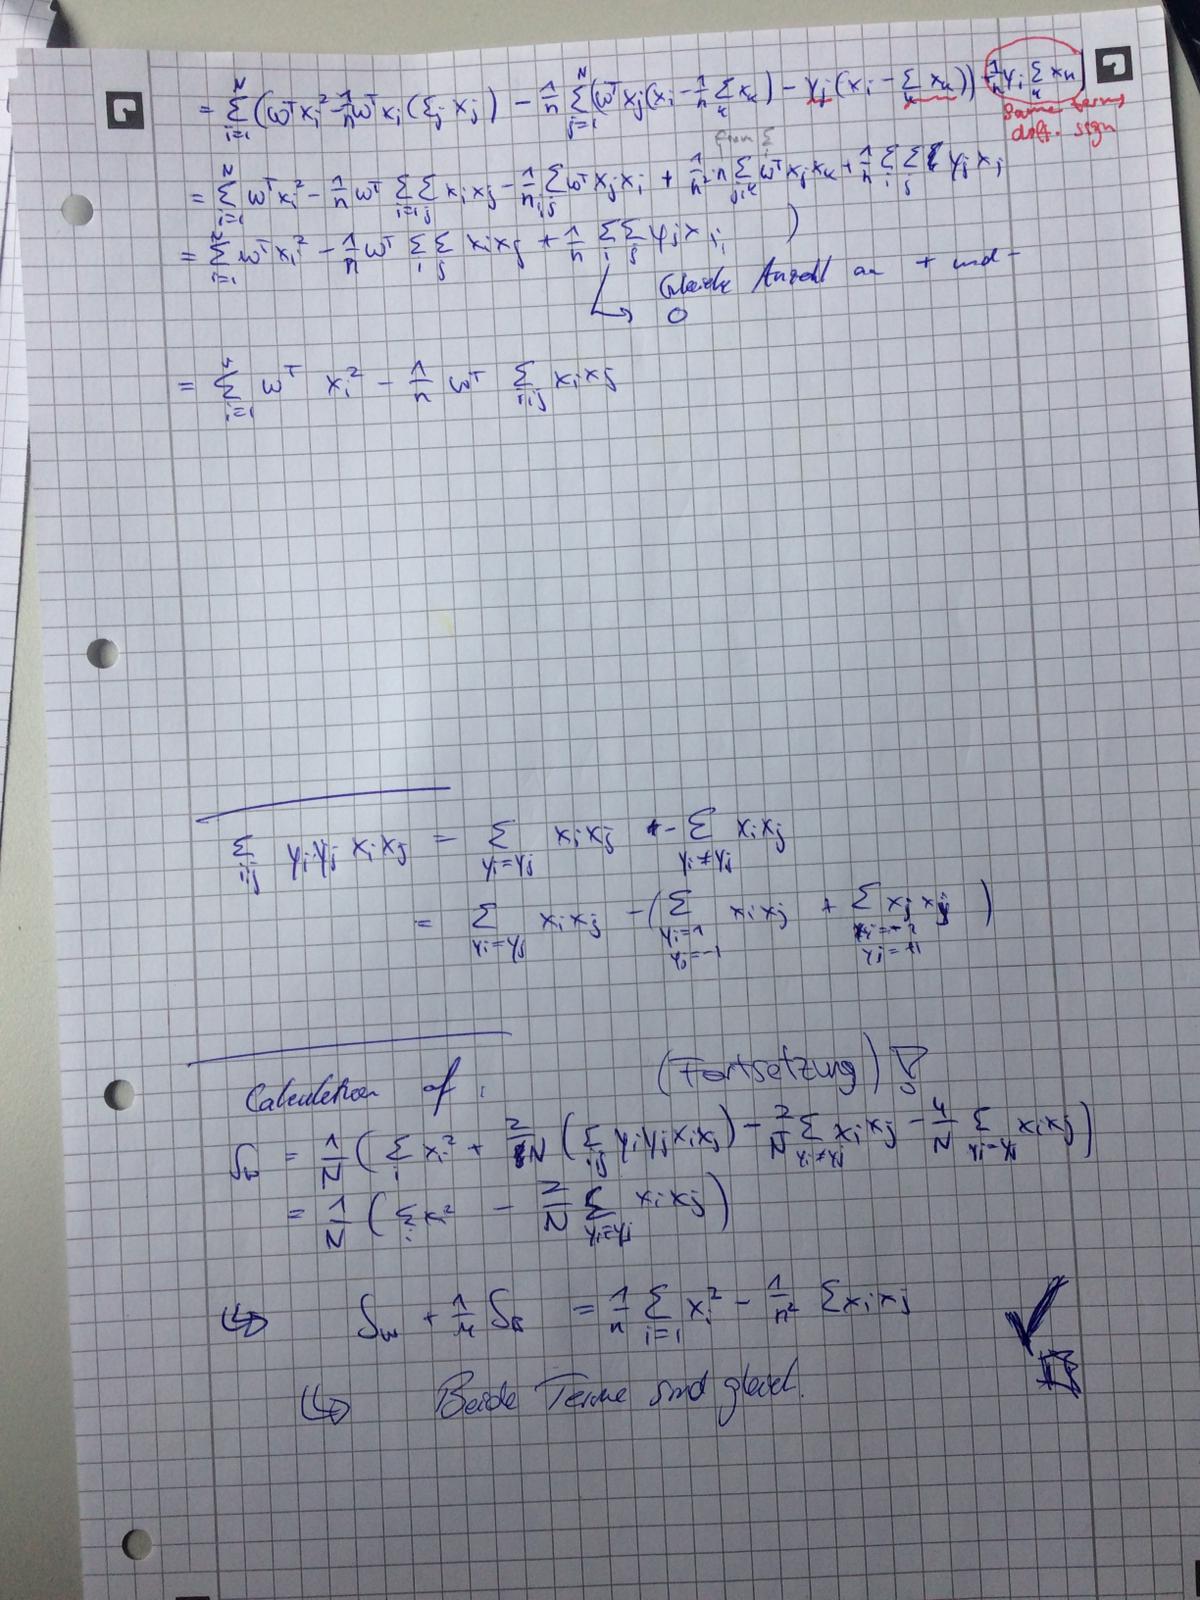 = Σ_{i=1}^{N} (ω^T x_i^2 - 1/n ω^T x_i (Σ_j x_j) - 1/n Σ_{j=1}^{N} (ω^T x_j (x_i - 1/n Σ_k x_k) - y_j (x_i - Σ_k x_k)) - 1/n y_i Σ_k x_k)
Same term,
diff. sign
from Σ_i
= Σ_{i=1}^{N} ω^T x_i^2 - 1/n ω^T Σ_{i=1} Σ_j x_i x_j - 1/n Σ_{i,j} ω^T x_j x_i + 1/n^2 · n Σ_{j,k} ω^T x_j x_k + 1/n Σ_i Σ_j y_j x_i
= Σ_{i=1}^{N} ω^T x_i^2 - 1/n ω^T Σ_i Σ_j x_i x_j + 1/n Σ_i Σ_j y_j x_i )
↳ Gleiche Anzahl an + und -
0
= Σ_{i=1}^{n} ω^T x_i^2 - 1/n ω^T Σ_{i,j} x_i x_j
Σ_{i,j} y_i y_j x_i x_j = Σ_{y_i=y_j} x_i x_j - Σ_{y_i≠y_j} x_i x_j
= Σ_{y_i=y_j} x_i x_j - (Σ_{y_i=1, y_j=-1} x_i x_j + Σ_{y_i=-1, y_j=+1} x_i x_j)
Calculation of: (Fortsetzung) ▽
S_w = 1/N (Σ_i x_i^2 + 2/N (Σ_{i,j} y_i y_j x_i x_j) - 2/N Σ_{y_i≠y_j} x_i x_j - 4/N Σ_{y_i=y_j} x_i x_j)
= 1/N (Σ_i x_i^2 - 2/N Σ_{y_i=y_j} x_i x_j)
↳ S_w + 1/4 S_B = 1/n Σ_{i=1} x_i^2 - 1/n^2 Σ x_i x_j ✓
↳ Beide Terme sind gleich.